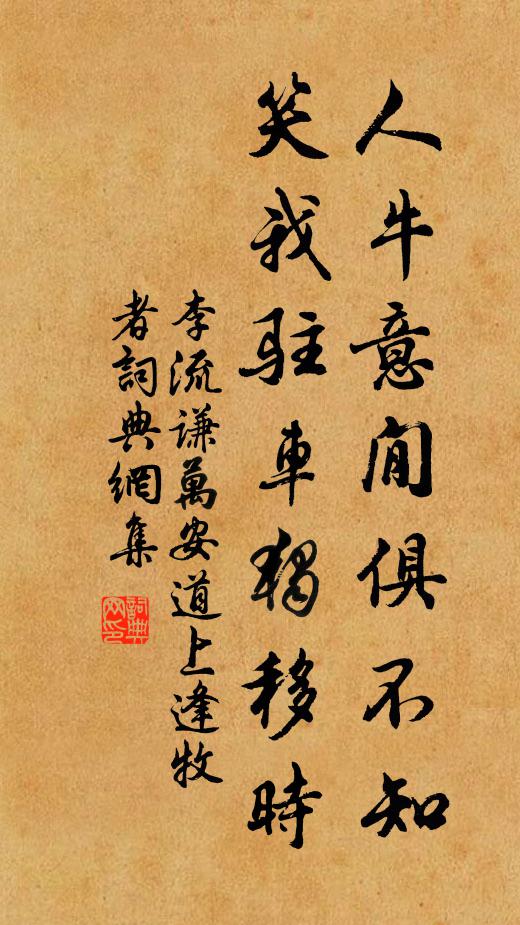 人牛意閒俱不知
笑我駐車獨移時
李流謙萬安道上逢牧
者詞典網集
詞典
网印